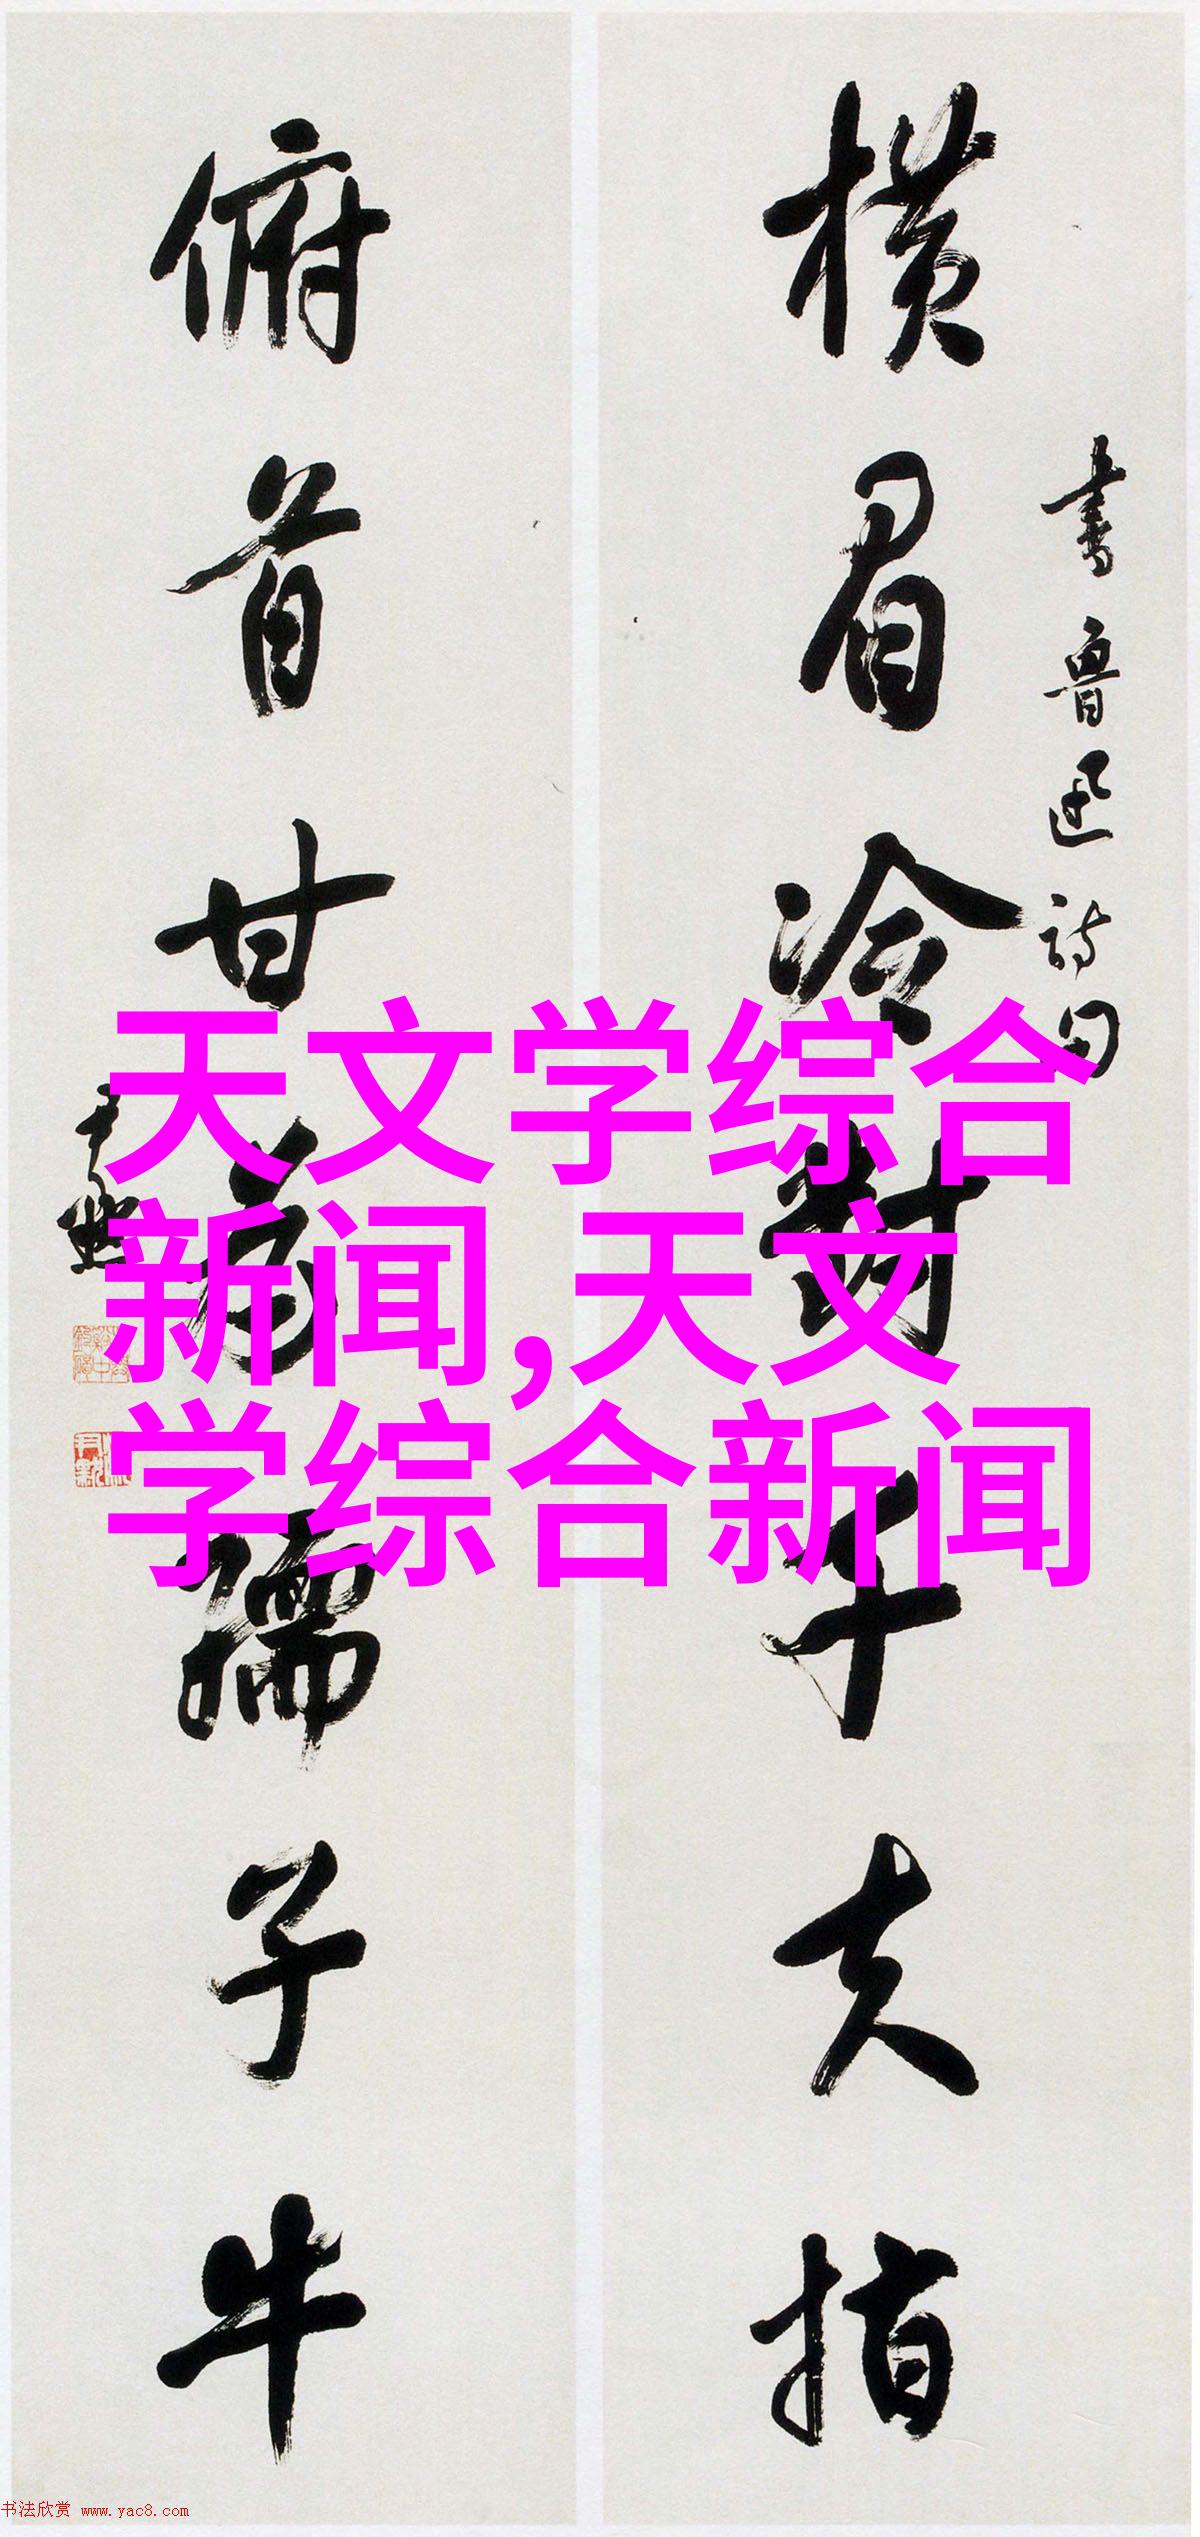 書魯迅詩句
横眉冷對千夫指
俯首甘為孺子牛
天文学综合
新闻,天文
学综合新闻
书法欣赏 www.yac8.com